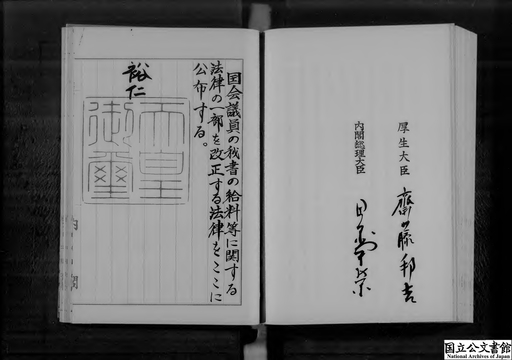 厚生大臣 齋藤邦吉
内閣総理大臣 田中角榮
国会議員の秘書の給料等に関する
法律の一部を改正する法律をここに
公布する。
裕仁
天皇
御璽
国立公文書館
National Archives of Japan